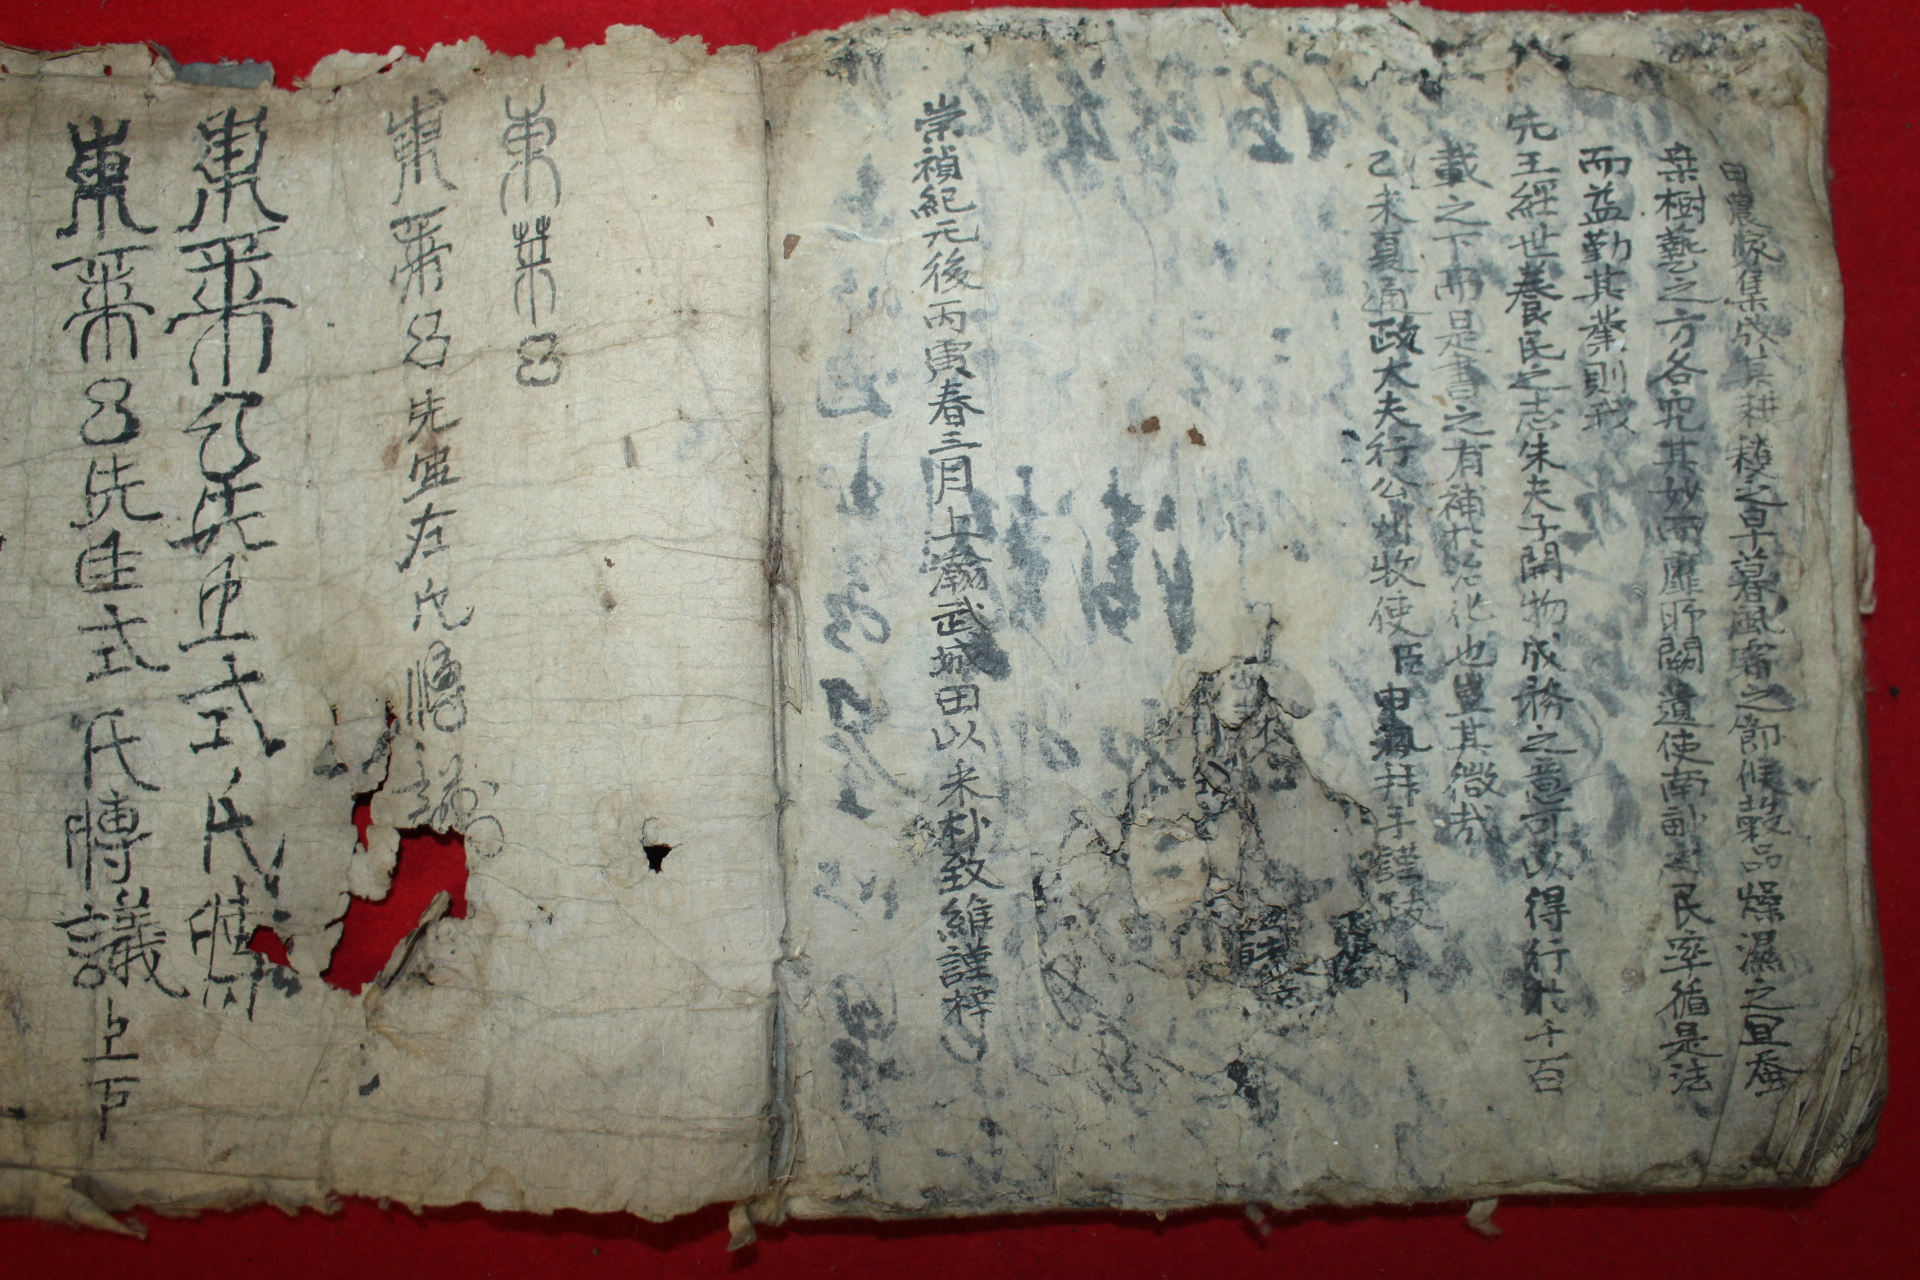 曰農家集成其耕穫之早暮風霜之節候穀品燥濕之宜蚕
桒樹藝之方各究其妙而靡所闕遺使南訛之民率循是法
而益勤其業則我
先王經世養民之志朱夫子開物成務之意可以得行於千百
載之下而是書之有補於治化也豈其微哉
乙未夏通政大夫行公州牧使臣申洬拜手謹跋
崇禎紀元後丙寅春三月上瀚武城田以采朴致維謹梓
東萊呂
東萊呂先生左氏博議
東萊呂先生左氏博
東萊呂先生左氏博議上下